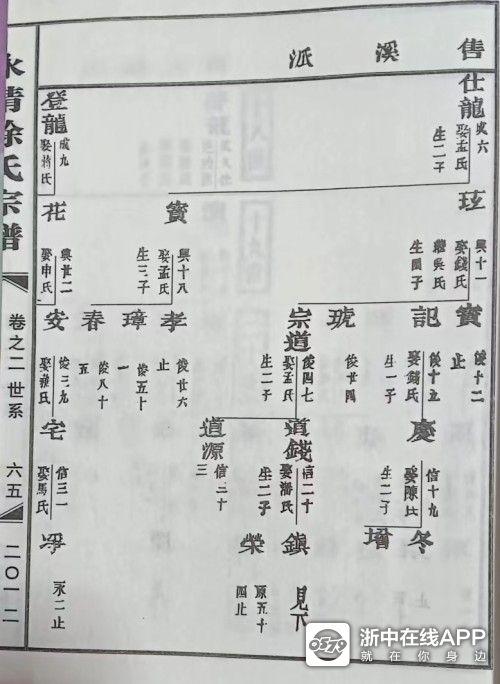 售溪派
仕龍
成六
娶孟氏
生二子
登龍
成九
娶蔣氏
玹
興十一
娶錢氏
繼吳氏
生四子
實
興十八
娶孟氏
生三子
花
興廿二
娶申氏
實
俊十二
止
記
俊十五
娶錢氏
生一子
琥
俊廿四
宗道
俊四七
娶孟氏
生二子
孝
俊廿六
止
璋
俊五十
一
春
俊八十
五
安
俊三九
慶
信十九
娶陳氏
生二子
道錢
信二十
娶潘氏
生二子
道源
信三十
三
宅
信三一
娶馬氏
冬
增
鎮
見下
榮
原五十
四止
永二止
永清徐氏宗譜
卷之二 世系
六五
二〇一二
浙中在线APP
就在你身边